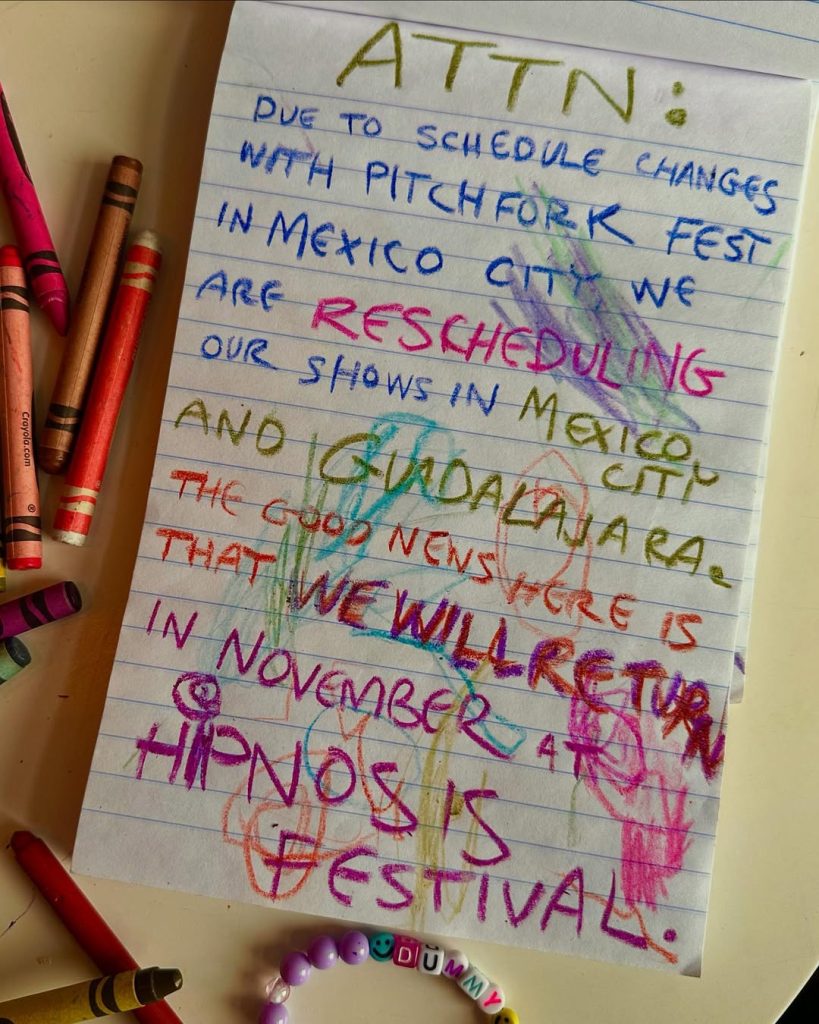 ATTN:
DUE TO SCHEDULE CHANGES
WITH PITCHFORK FEST
IN MEXICO CITY, WE
ARE RESCHEDULING
OUR SHOWS IN MEXICO
CITY
AND GUADALAJARA.
THE GOOD NEWS HERE IS
THAT WE WILL RETURN
IN NOVEMBER AT
@HIPNOSIS
FESTIVAL.
Crayola.com
®
DUMMY